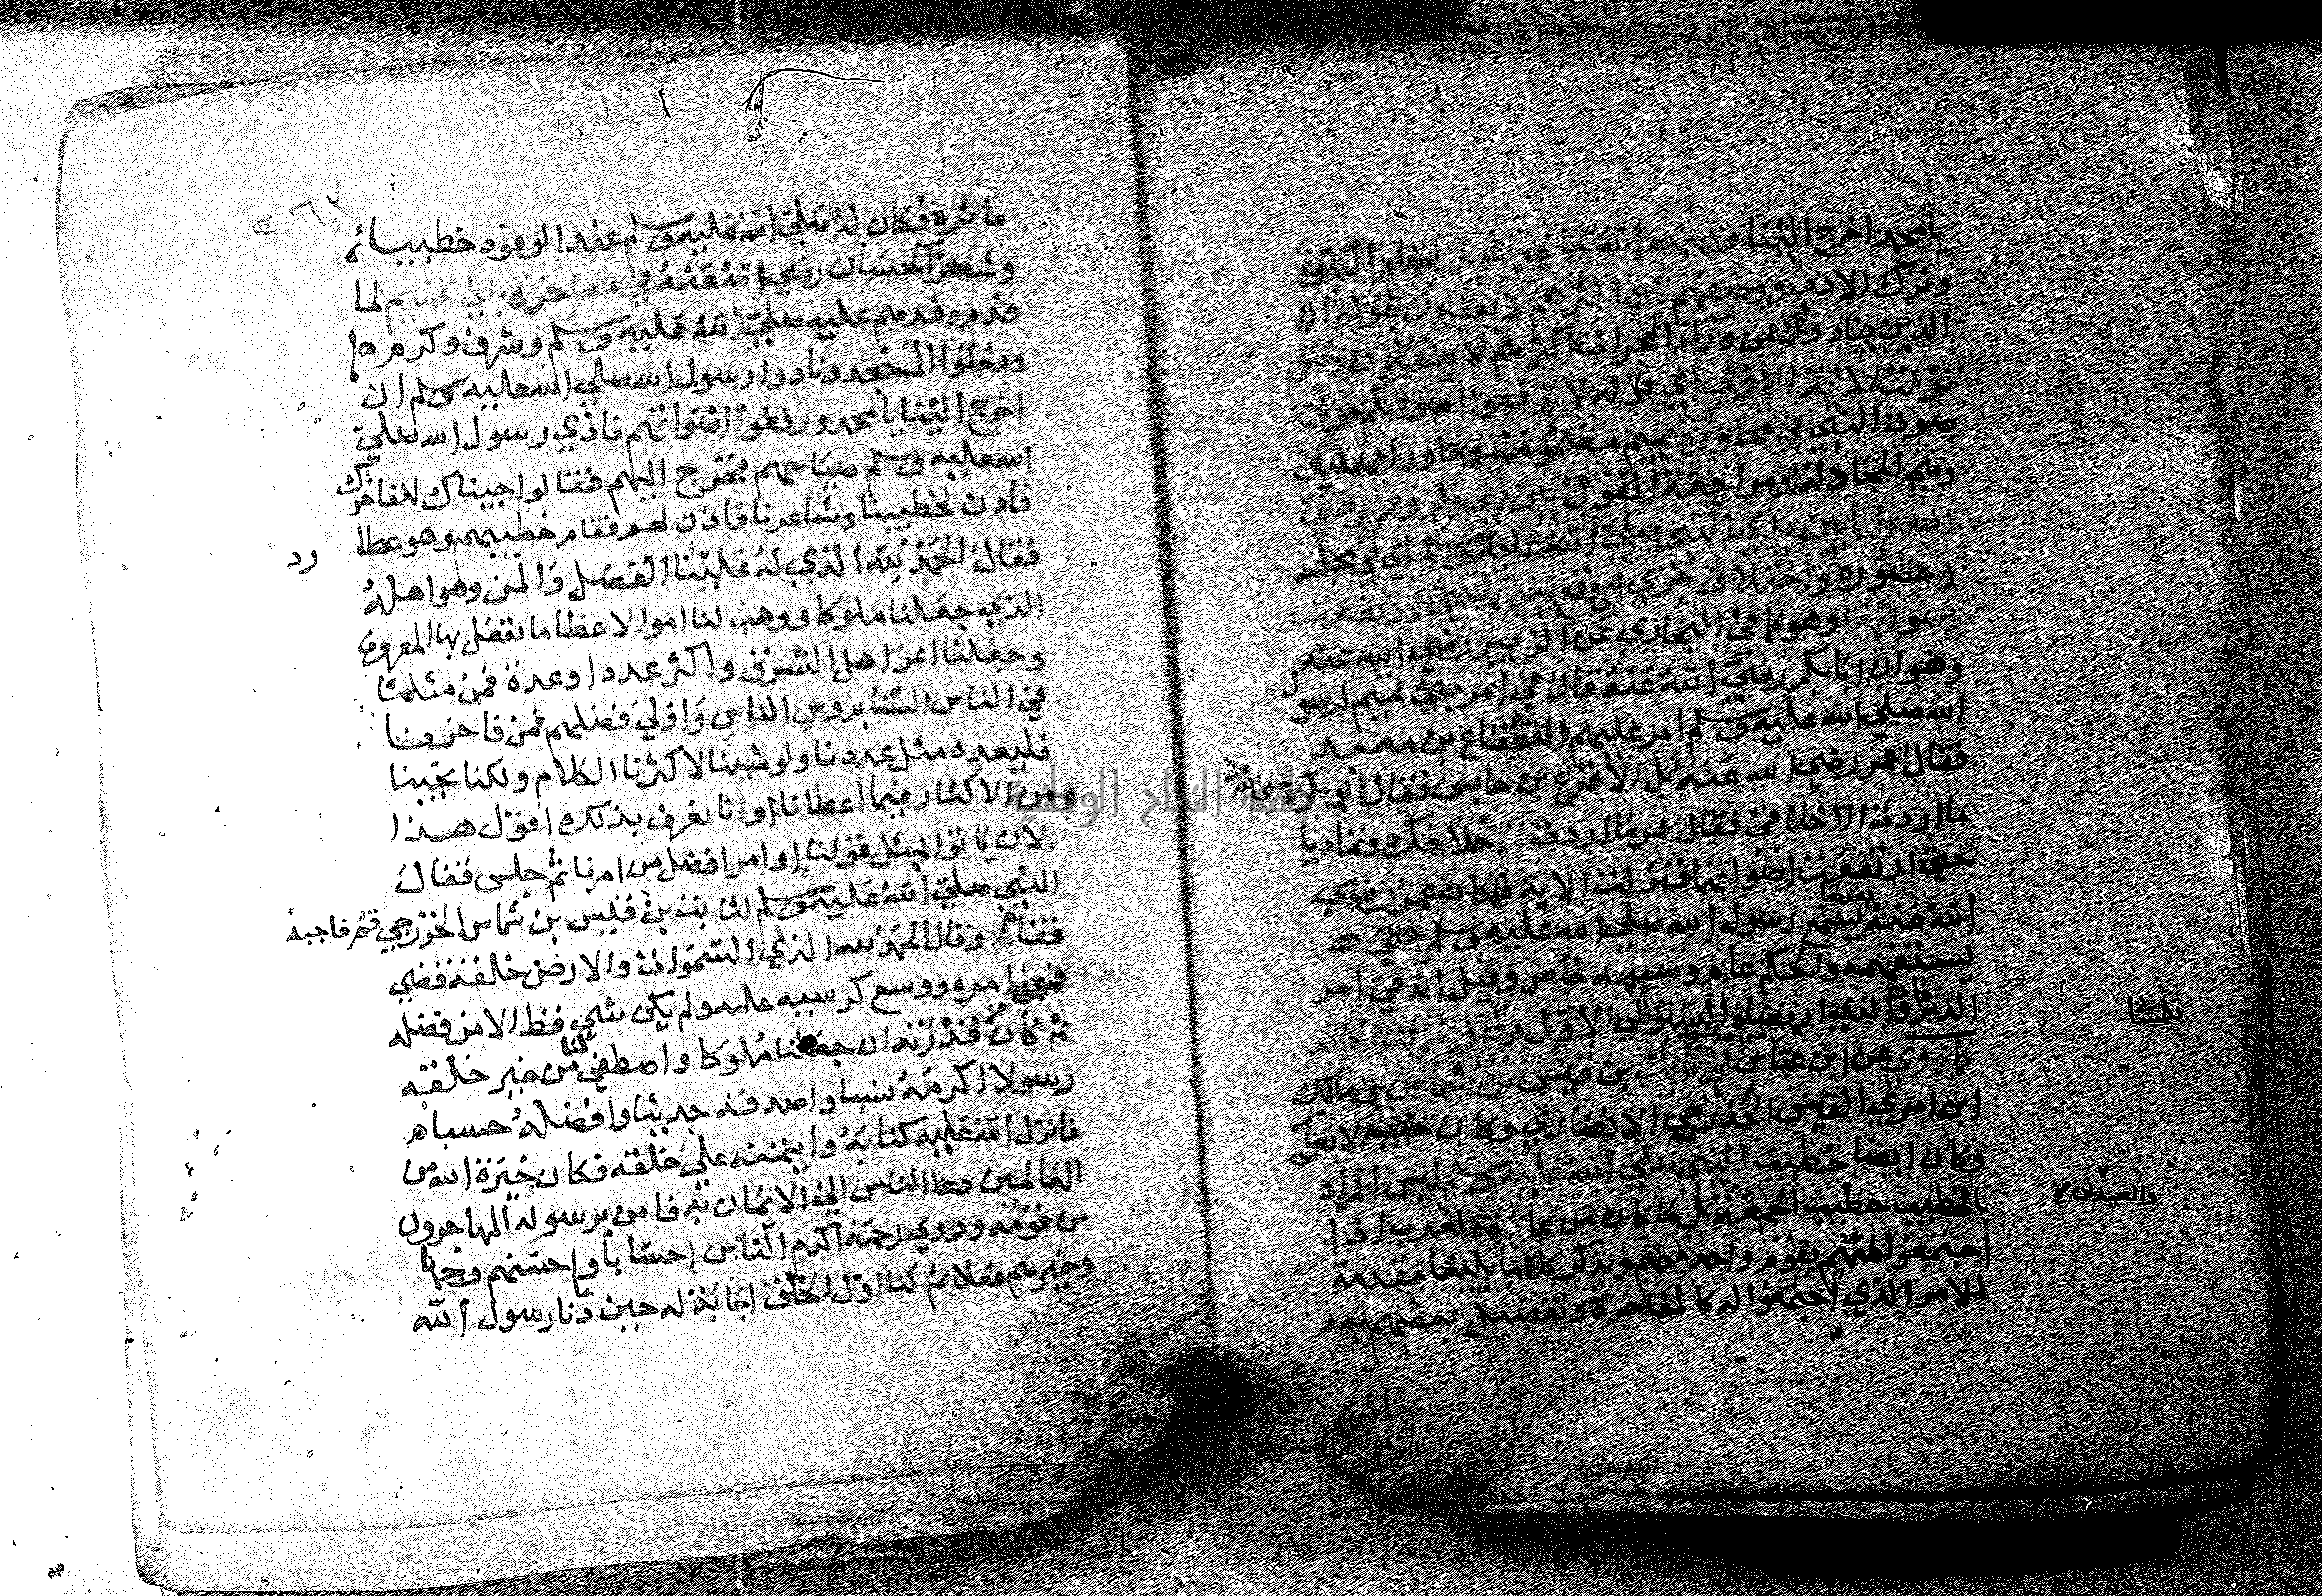 يا محمد اخرج الينا فذمهم الله تعالي بالجهل بمقام النبوة
وترك الادب ووصفهم بان اكثرهم لا يعقلون بقوله ان
الذين ينادونك من ورآء الحجرات اكثرهم لا يعقلون وقيل
نزلت الاية الاولي اي قوله لا ترفعوا اصواتكم فوق
صوت النبي في محاورة بميم مضمومة وحاورا مهملتين
وهي المجادلة ومراجعة القول بين ابي بكر وعمر رضي
الله عنهما بين يدي النبي صلي الله عليه وسلم اي في مجلسه
وحضوره واختلاف جري اي وقع بينهما حتي ارتفعت
اصواتهما وهو كما في البخاري عن الزبير رضي الله عنه
وهو ان ابا بكر رضي الله عنه قال في امر بني تميم لرسول
الله صلي الله عليه وسلم امر عليهم القعقاع بن معبد
فقال عمر رضي الله عنه بل الأقرع بن حابس فقال ابو بكر رضي الله عنه
ما اردت الا خلافي فقال عمر ما اردت خلافك وتماديا
حتي ارتفعت اصواتهما فنزلت الاية فما كان عمر رضي
الله عنه يسمع رسول الله صلي الله عليه وسلم بعدها حتي
يستفهمه والحكم عام وسببه خاص وقيل انه في امر
الذي ارتضاه السيوطي الاول وقيل نزلت الاية
كما روي عن ابن عباس في ثابت بن قيس بن شماس بن مالك
ابن امرئ القيس الخزرجي الانصاري وكان خطيب الانصار
وكان ايضا خطيب النبي صلي الله عليه وسلم ليس المراد
بالخطيب خطيب الجمعة بل ما كان من عادة العرب اذا
اجتمعوا لمهم يقوم واحد منهم ويذكر كلاما بليغا مقدمة
للامر الذي اجتمعوا له كالمفاخرة وتفضيل بعضهم بعد
ماثره
ماثره فكان له صلي الله عليه وسلم عند الوفود خطيبا ثم
وشعر الحسان رضي الله عنه في مفاخرة بني تميم لما
قدم وفدهم عليه صلي الله عليه وسلم وشرف وكرم
ودخلوا المسجد ونادوا رسول الله صلي الله عليه وسلم ان
اخرج الينا يا محمد ورفعوا اصواتهم فاذي رسول الله صلي
الله عليه وسلم صياحهم فخرج اليهم فقالوا جيناك لنفاخرك
فاذن لخطيبنا وشاعرنا فاذن لهم فقام خطيبهم وهو عطارد
فقال الحمد لله الذي له علينا الفضل والمن وهو اهله
الذي جعلنا ملوكا ووهب لنا اموالا عظاما نفعل بها المعروف
وجعلنا اعز اهل الشرق واكثر عددا وعدة فمن مثلنا
في الناس السنا بروس الناس واولي فضلهم فمن فاخرنا
فليعدد مثل عددنا ولو شينا لاكثرنا الكلام ولكنا
من الاكثار فيما اعطانا وانا نعرف بذلك اقول هذا
لان ياتوا بمثل قولنا او امر افضل من امرنا ثم جلس فقال
النبي صلي الله عليه وسلم لثابت بن قيس بن شماس الخزرجي قم فاجبه
فقام وقال الحمد لله الذي السموات والارض خلقه قضي
فيهن امره ووسع كرسيه علمه ولم يكن شي قط الا من فضله
ثم كان من قدرته ان جعلنا ملوكا واصطفي لنا من خير خلقه
رسولا اكرمه نسبا واصدقه حديثا وافضله حسبا
فانزل الله عليه كتابه وايتمنه علي خلقه فكان خيرة الله من
العالمين دعا الناس الي الايمان به فامن برسوله المهاجرون
من قومه وذوي رحمه اكرم الناس احسابا واحسنهم وجوها
وخيرهم فعلا ثم كنا اول الخلق اجابة له حين دعانا رسول الله